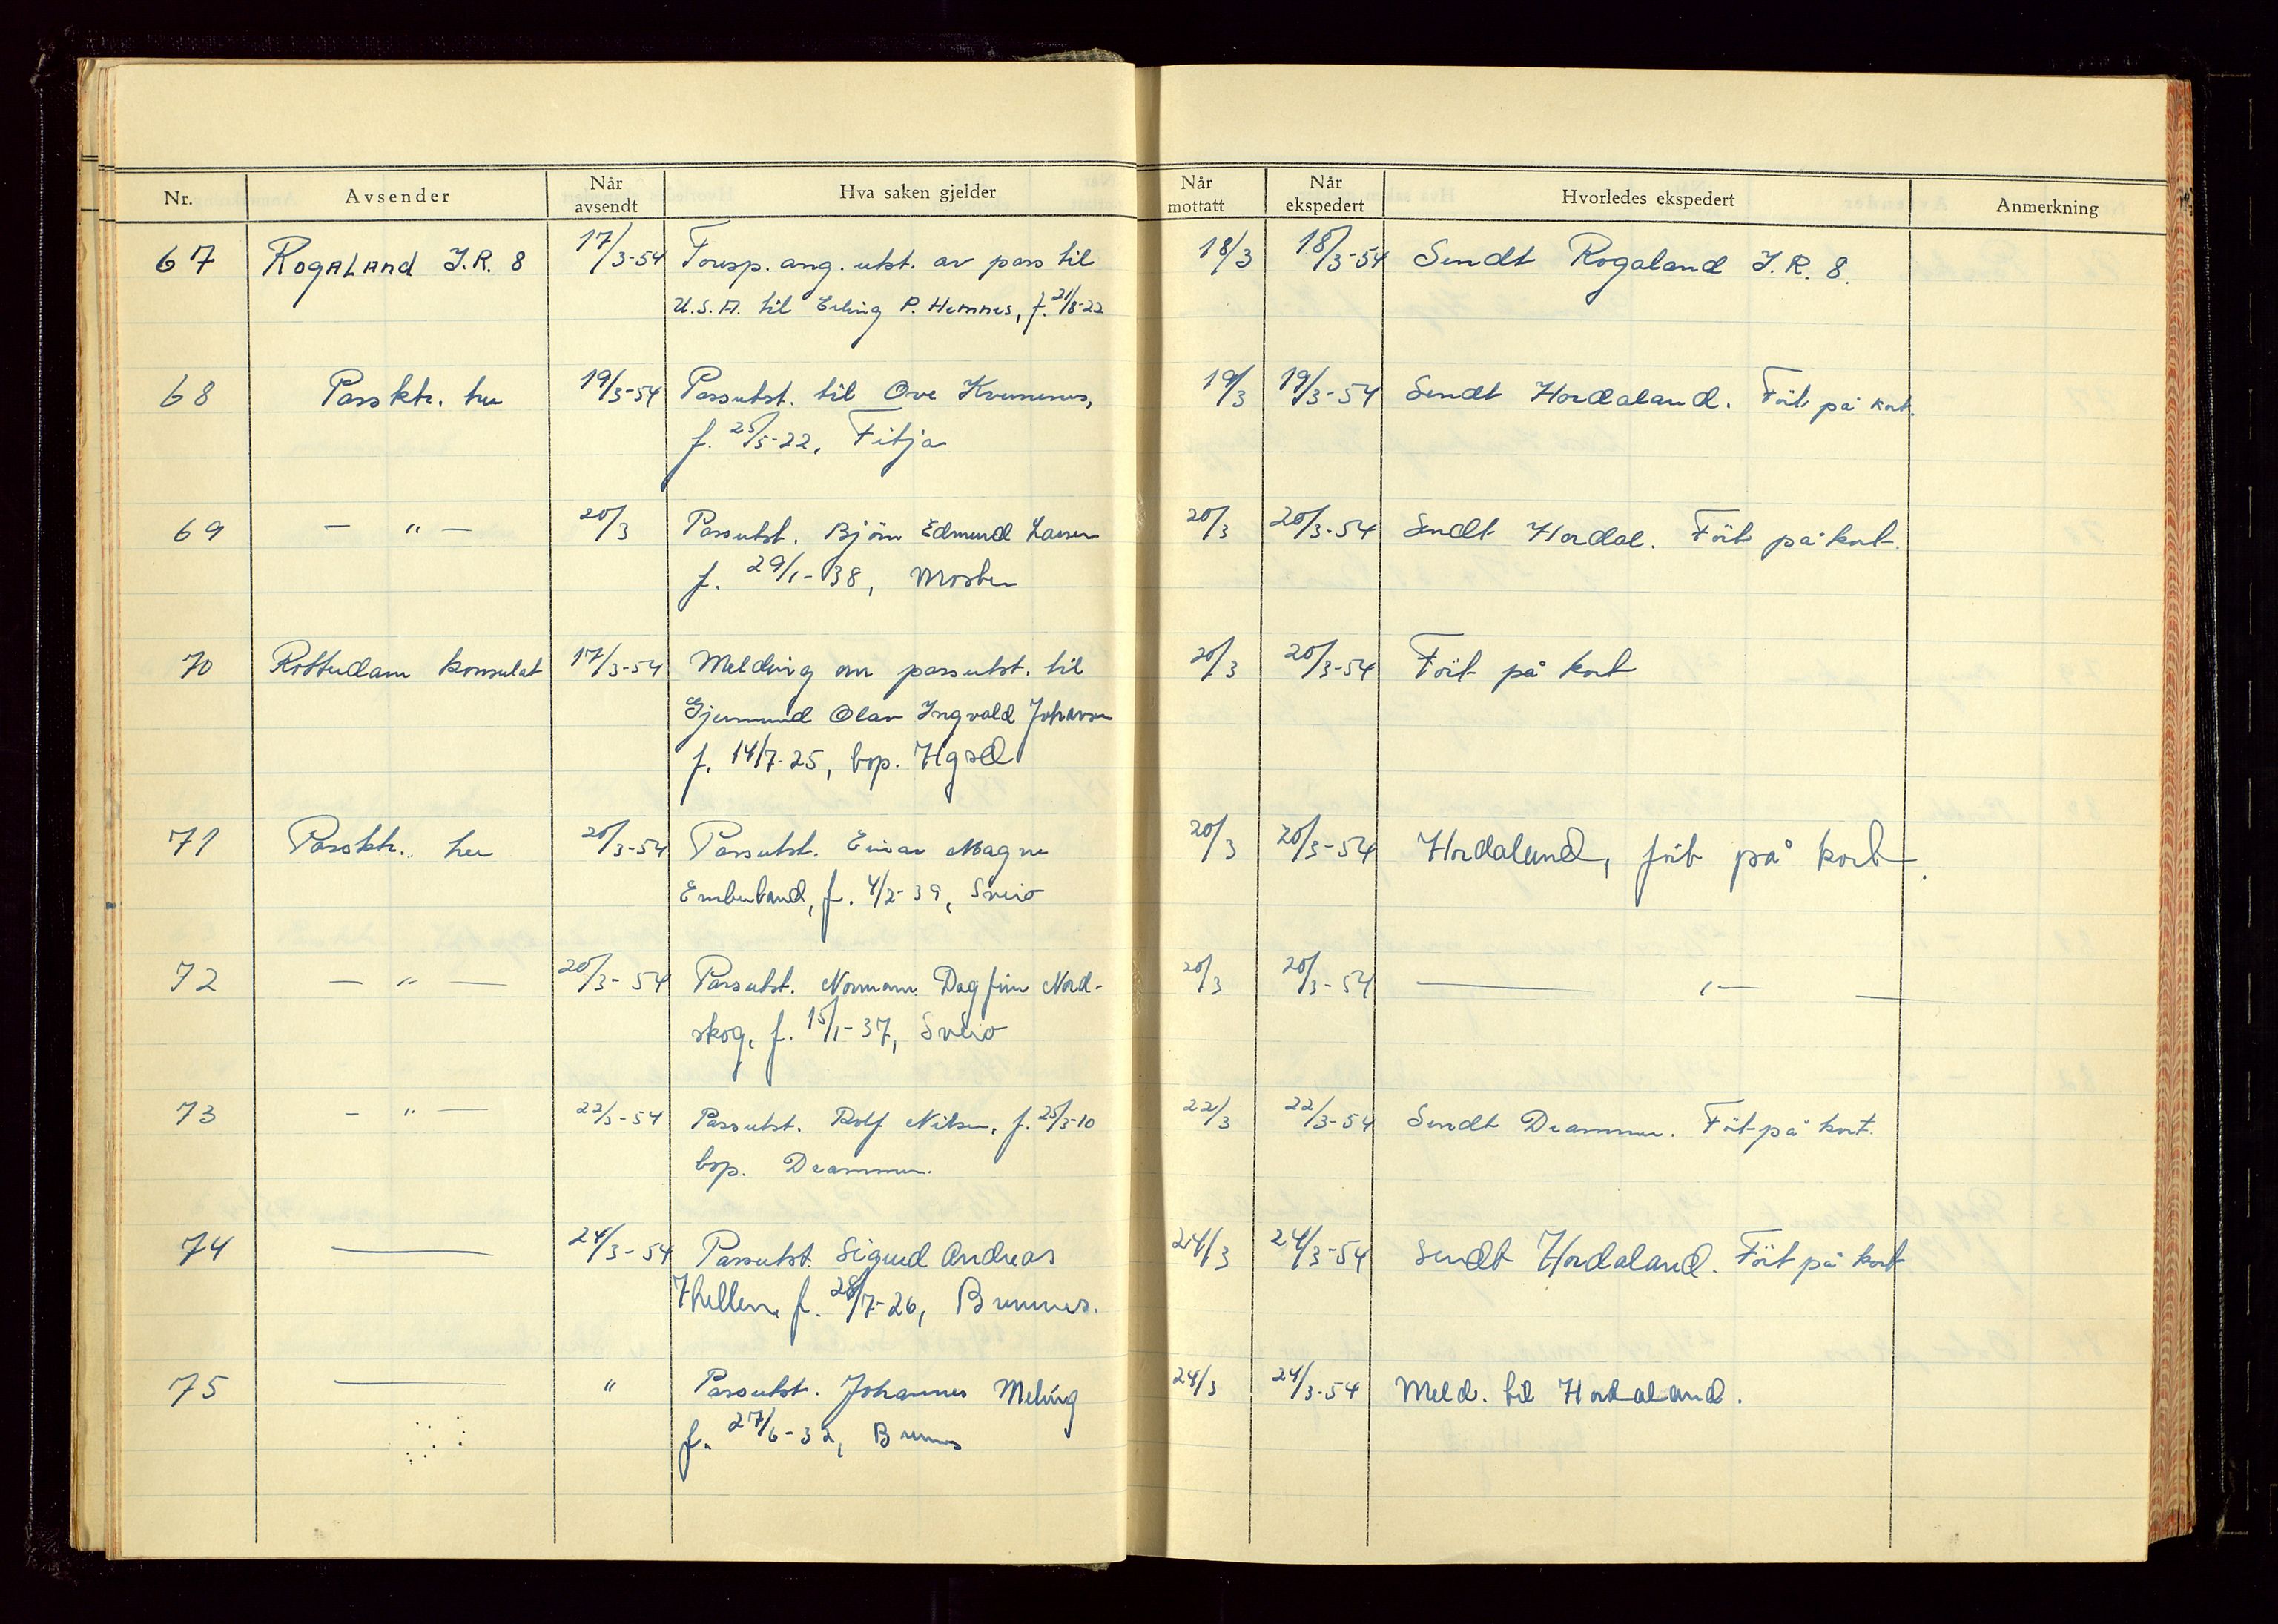 Nr. Avsender Når avsendt Hva saken gjelder Når mottatt Når ekspedert Hvorledes ekspedert Anmerkning
67 Rogaland I.R. 8 17/3-54 Foresp. ang. utst. av pass til 18/3 18/3-54 Sendt Rogaland I.R. 8.
U.S.A. til Erling P. Hemnes, f. 21/8-22
68 Passktr. her 19/3-54 Passutst. til Ove 19/3 19/3-54 Sendt Hordaland. Ført på kort.
f. 25/5-22, Fitja
69 — " — 20/3 Passutst. Bjørn Edmund Larsen 20/3 20/3-54 Sendt Hordal. Ført på kort.
f. 29/1-38, Moster
70 Rotterdam konsulat 17/3-54 Melding om passutst. til 20/3 20/3-54 Ført på kort
Gjermund Olav Ingvald Johansen
f. 14/7-25, bop. Hgsd
71 Passktr. her 20/3-54 Passutst. Einar Magne 20/3 20/3-54 Hordaland, ført på kort.
Emberland, f. 4/2-39, Sveio
72 — " — 20/3-54 Passutst. Normann Dagfinn Nord- 20/3 20/3-54 — " —
skog, f. 15/1-37, Sveio
73 — " — 22/3-54 Passutst. Rolf Nilsen, f. 25/3-10 22/3 22/3-54 Sendt Drammen. Ført på kort.
bop. Drammen.
74 — 24/3-54 Passutst. Sigurd Andreas 24/3 24/3-54 Sendt Hordaland. Ført på kort
f. 28/7-26, Bremnes.
75 — " Passutst. Johannes Meling 24/3 24/3-54 Meld. til Hordaland.
f. 27/6-32, Bremnes